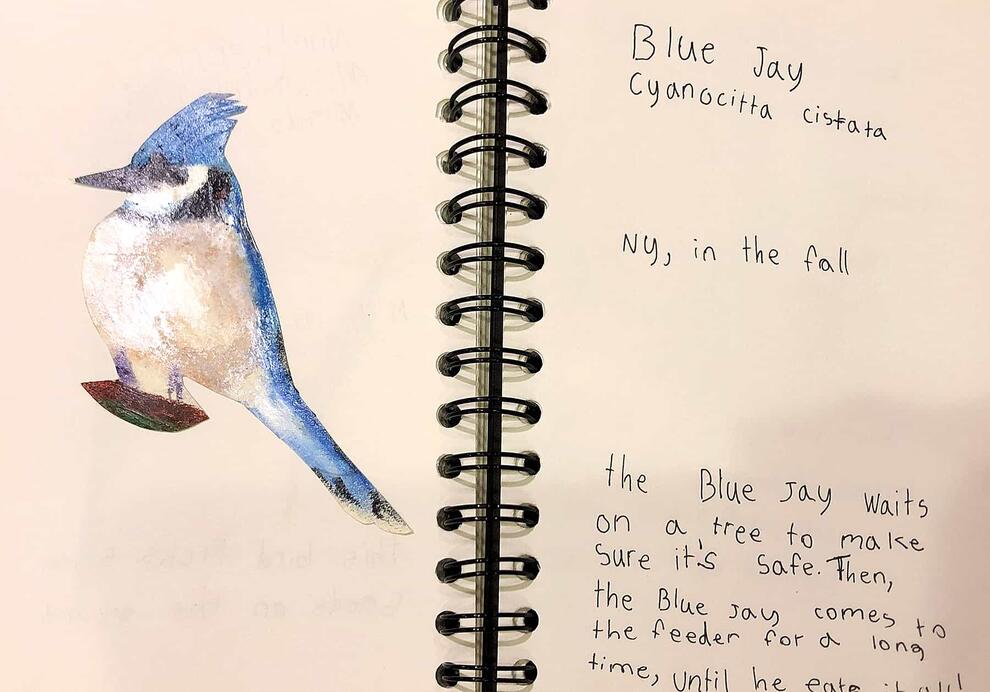 Blue Jay
Cyanocitta cistata
NY, in the fall
the Blue Jay waits
on a tree to make
sure it's safe. Then,
the Blue Jay comes to
the feeder for a long
time, until he eats it all!